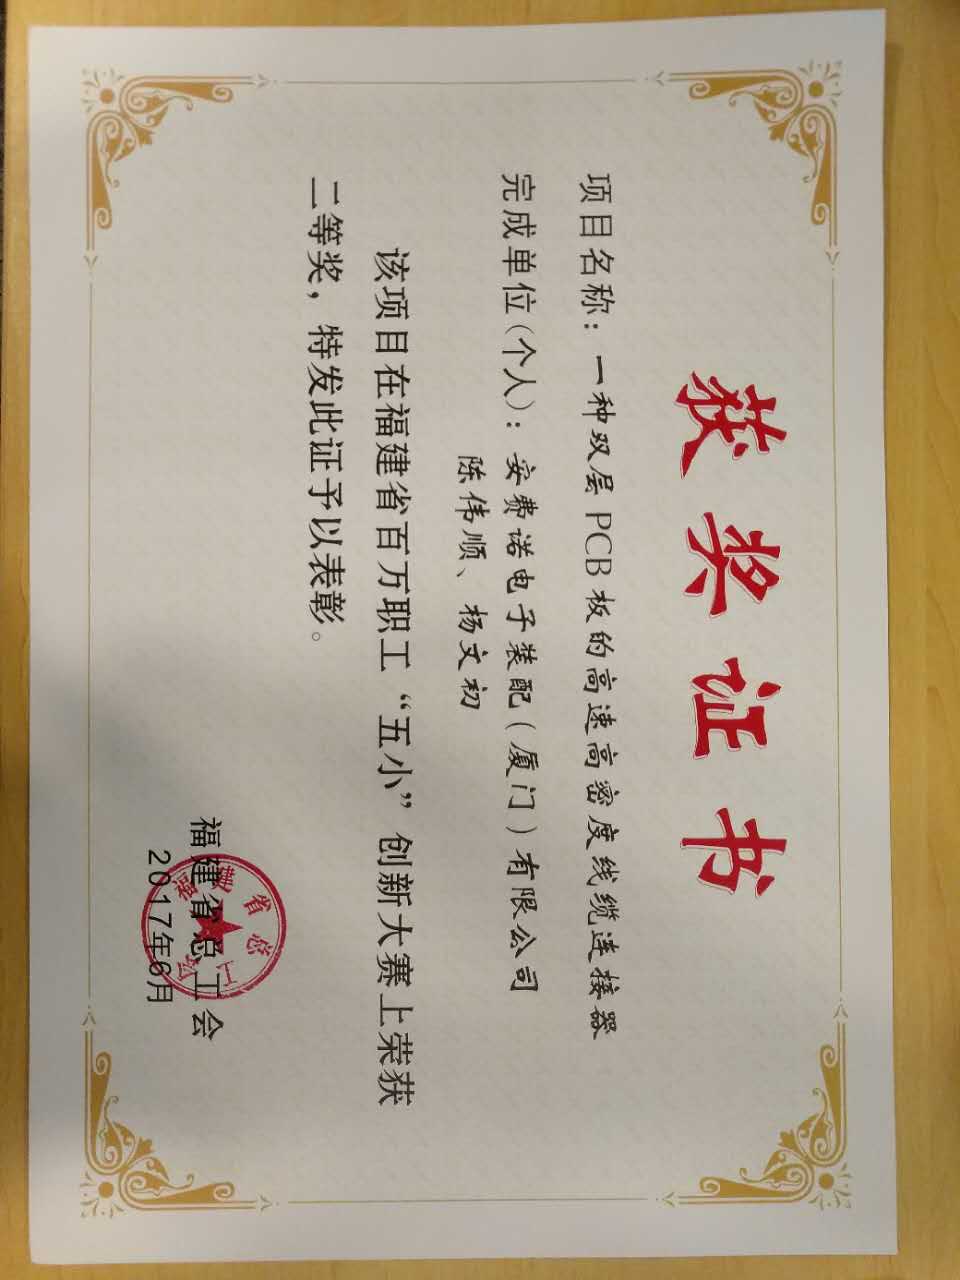 获奖证书
项目名称：一种双层PCB板的高速高密度线缆连接器
完成单位(个人)：安费诺电子装配(厦门)有限公司
陈伟顺、杨文初
该项目在福建省百万职工“五小”创新大赛上荣获
二等奖，特发此证予以表彰。
福建省总工会
2017年6月
福建省总工会